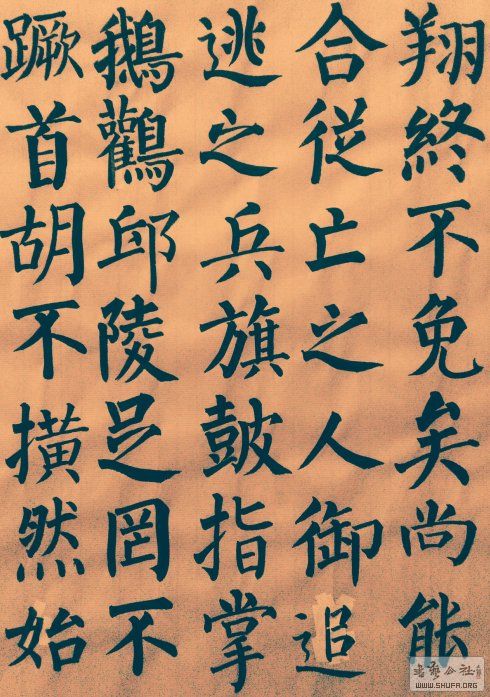 翔終不免矣尚能
合従亡之人御追
逃之兵旗皷指掌
鵝鸛邱陵足罔不
蹶首胡不撗然始
WWW.SHUFA.ORG